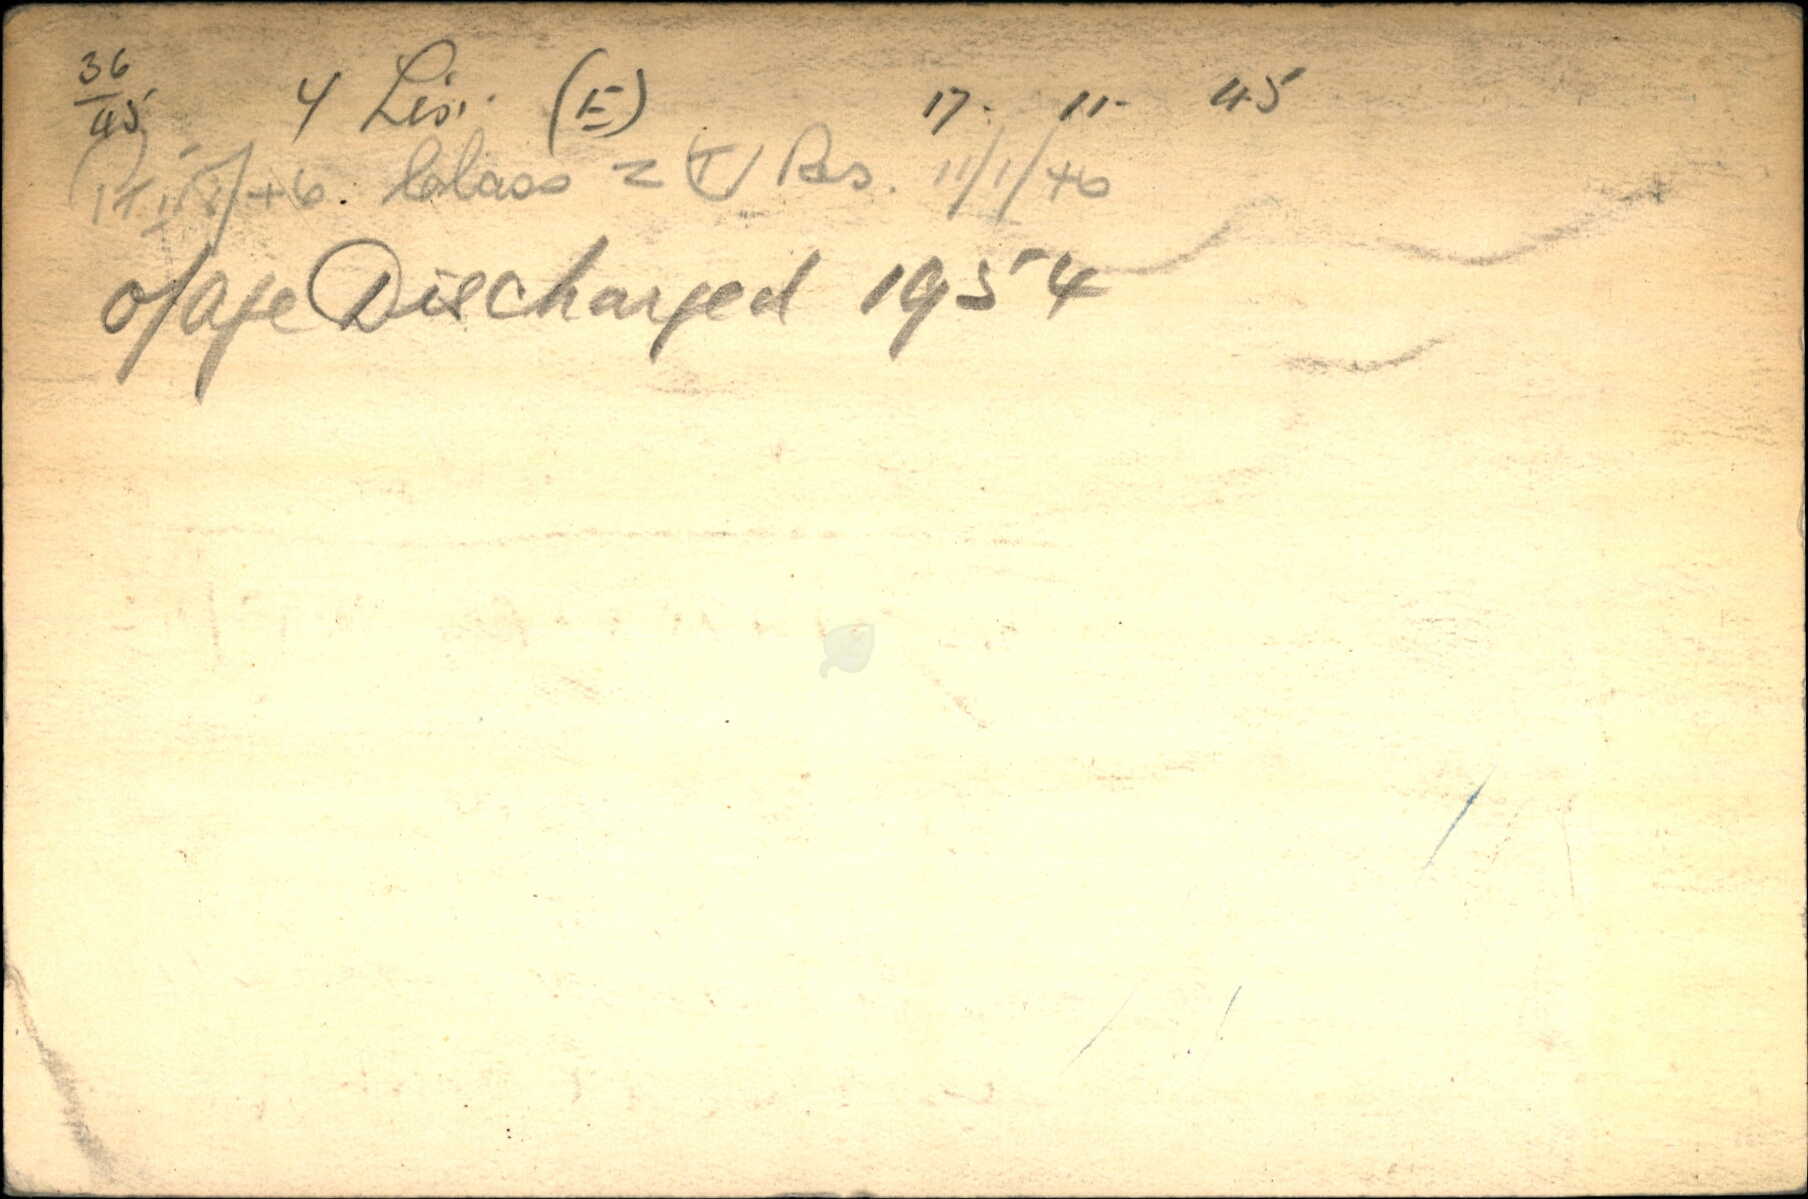 36/45 Y Lis. (E) 17. 11. 45
Pt II 5/46. Class Z (T) Res. 11/1/46
o/age Discharged 1954